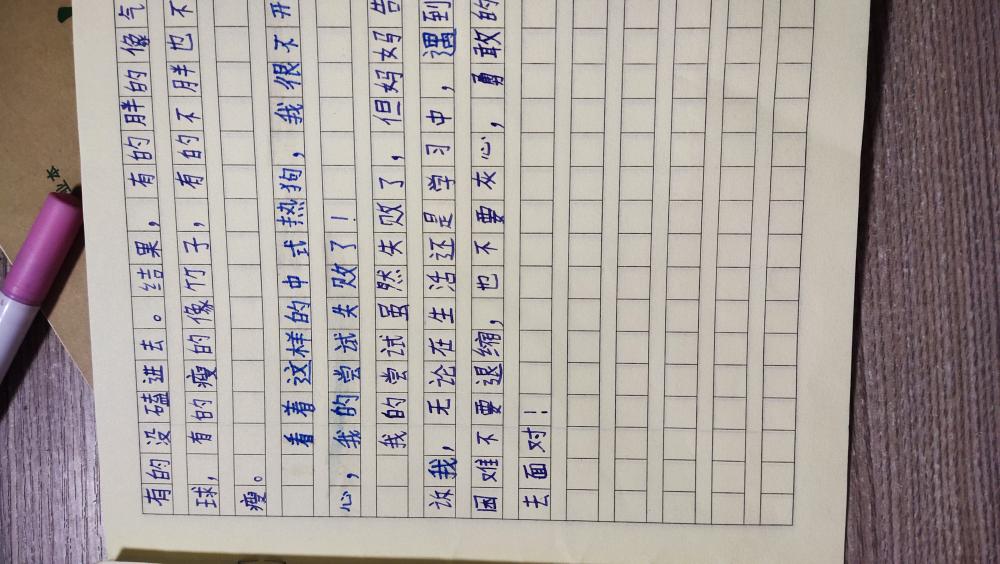 有的没磕进去。结果，有的胖的像气
球，有的瘦的像竹子，有的不胖也不
瘦。
看着这样的中式热狗，我很不开
心，我的尝试失败了！
我的尝试虽然失败了，但妈妈告
诉我，无论在生活还是学习中，遇到
困难不要退缩，也不要灰心，勇敢的
去面对！